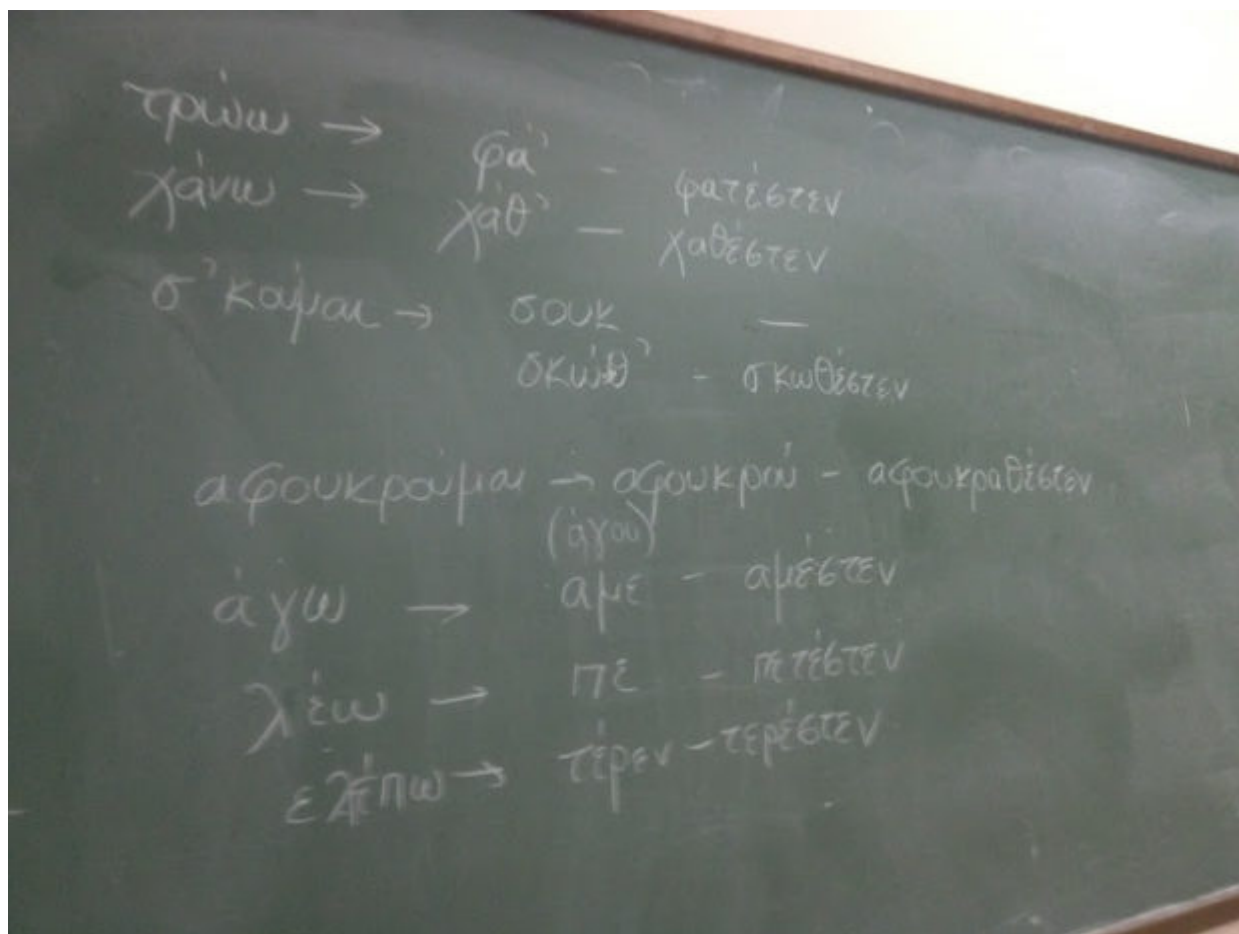 τρώω → φά' - φατέστεν
χάνω → χάθ' — χαθέστεν
σ'κούμαι → σουκ —
σκώθ' - σκωθέστεν
αφουκρούμαι → αφουκρού - αφουκραθέστεν
(άγου)
άγω → αμε - αμέστεν
λέω → πέ - πετέστεν
ελέπω → τέρεν - τερέστεν